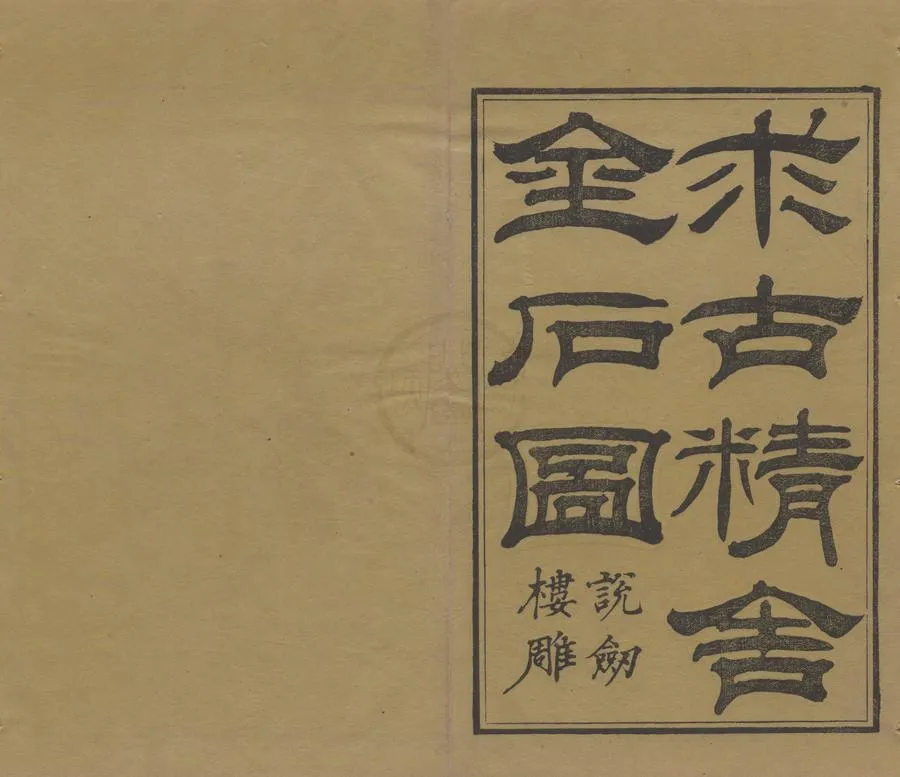 求古精舍
金石圖
說劍
樓雕